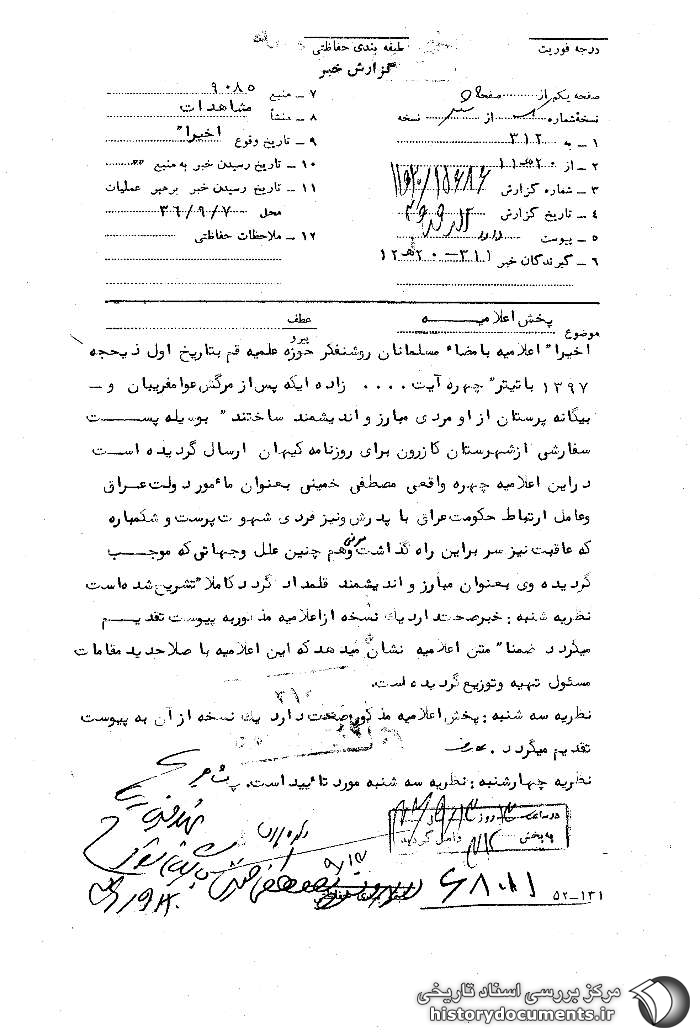 درجه فوریت
طبقه بندی حفاظتی
گزارش خبر
صفحه یکم از صفحه
نسخه شماره از نسخه
۱ - به ۳۱۲
۲ - از ۱۱ه۲۰
۳ - شماره گزارش
۴ - تاریخ گزارش
۵ - پیوست دارد
۶ - گیرندگان خبر ۳۱۱ - ۲۰ه۱۲
۷ - منبع ۹۰۸۵
۸ - منشأ مشاهدات
۹ - تاریخ وقوع اخیرا"
۱۰ - تاریخ رسیدن خبر به منبع
۱۱ - تاریخ رسیدن خبر برهبر عملیات
محل ۳۶/۹/۷
۱۲ - ملاحظات حفاظتی
موضوع پخش اعلامیه
عطف
پیرو
اخیرا" اعلامیه بامضاء مسلمانان روشنفکر حوزه علمیه قم بتاریخ اول ذیحجه
۱۳۹۷ با تیتر" چهره آیت .... زاده ایکه پس از مرگش عوامفریبان و -
بیگانه پرستان از او مردی مبارز و اندیشمند ساختند" بوسیله پست
سفارشی ازشهرستان کازرون برای روزنامه کیهان ارسال گردیده است
دراین اعلامیه چهره واقعی مصطفی خمینی بعنوان مأمور دولت عراق
وعامل ارتباط حکومت عراق با پدرش ونیز فردی شهوت پرست و شکمباره
که عاقبت نیز سر براین راه گذاشت معرفی وهم چنین علل وجهاتی که موجب
گردیده وی بعنوان مبارز و اندیشمند قلمداد گردد کاملا" تشریح شده است
نظریه شنبه : خبرصحت دارد یك نسخه ازاعلامیه مذکوربه پیوست تقدیم
میگردد ضمنا" متن اعلامیه نشان میدهد که این اعلامیه با صلاحدید مقامات
مسئول تهیه وتوزیع گردیده است.
۳۱۰
نظریه سه شنبه : پخش اعلامیه مذکور صحت دارد یك نسخه از آن به پیوست
تقدیم میگردد .
نظریه چهارشنبه : نظریه سه شنبه مورد تائید است.
در ساعت روز
به بخش واصل گردید
۹/۱۲
۵۲-۱۳۱
مرکز بررسی اسناد تاریخی
historydocuments.ir